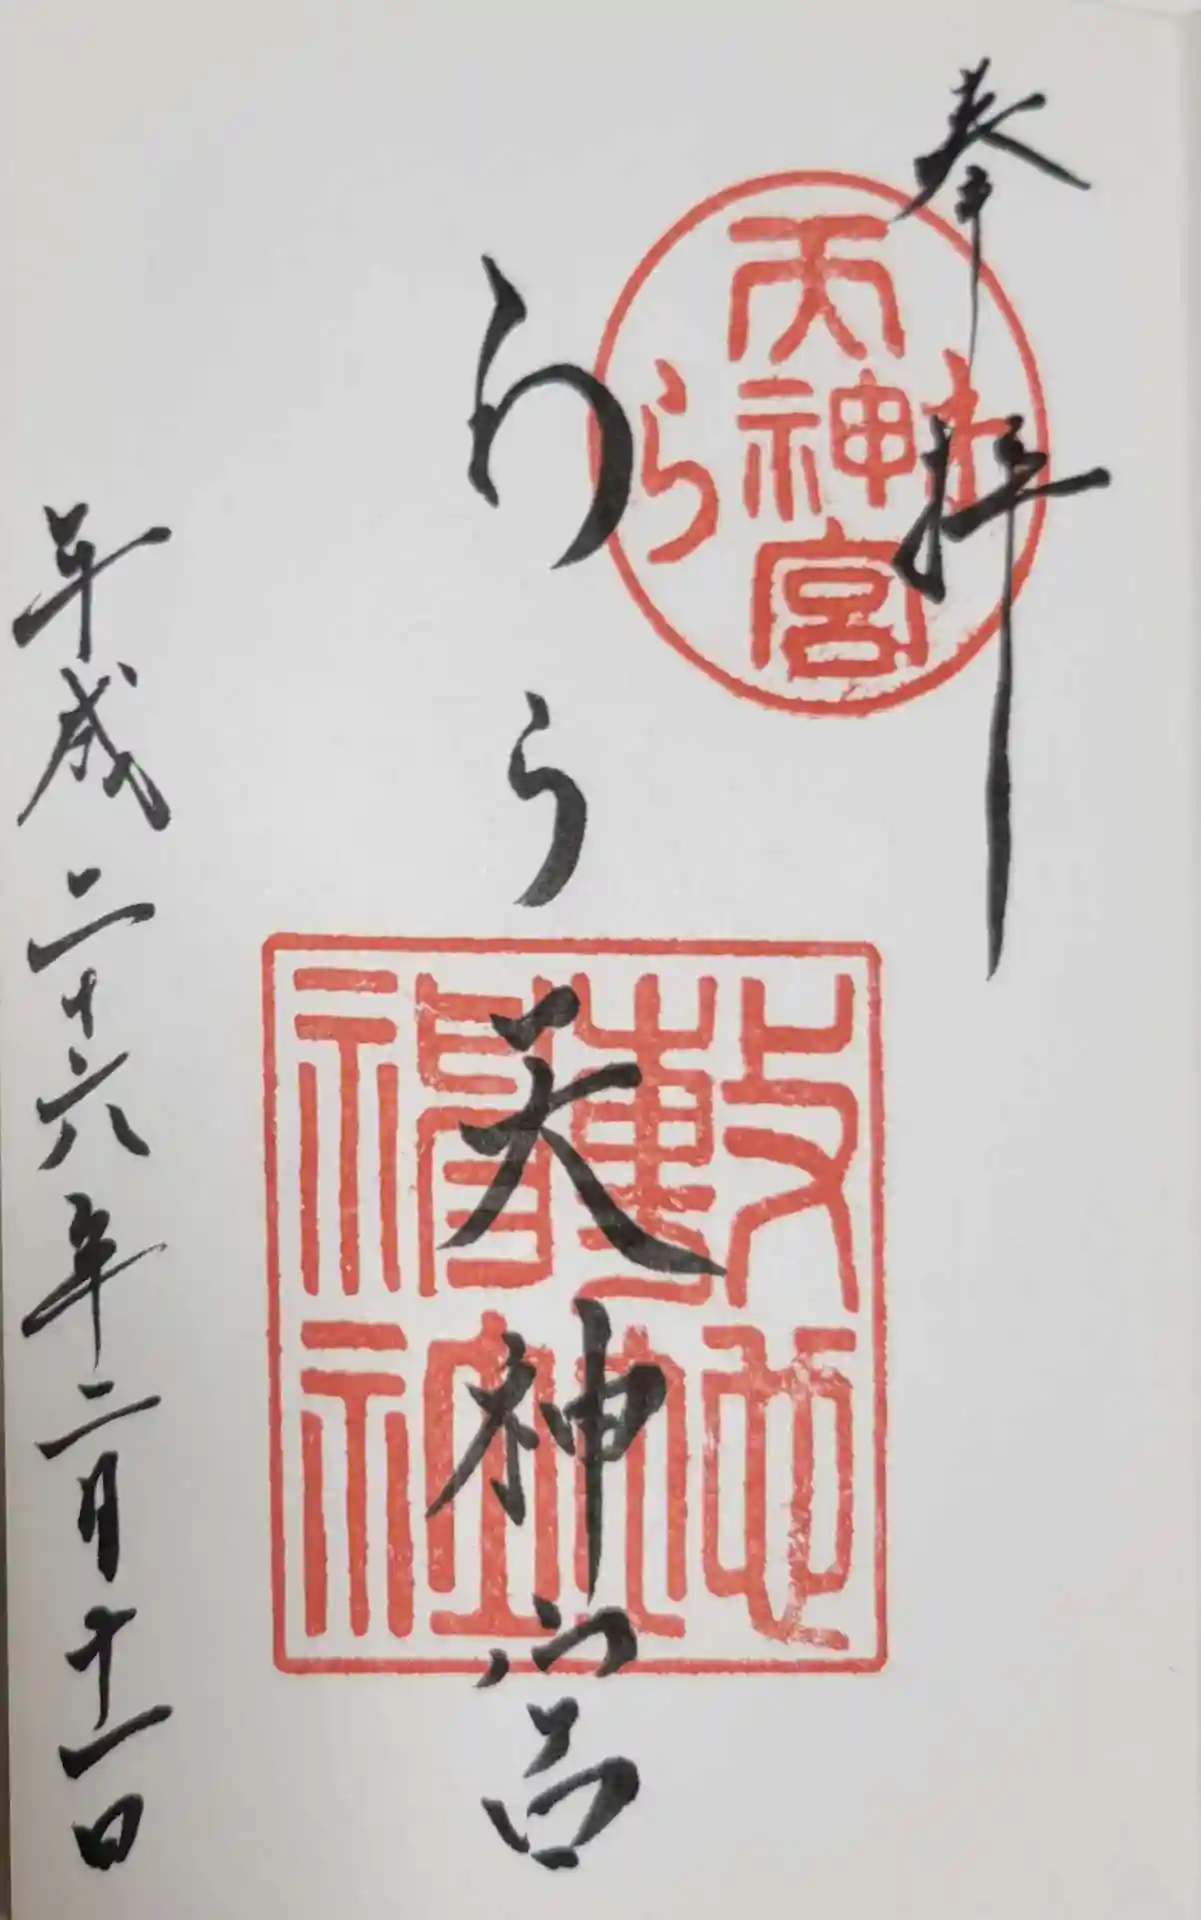 奉拝
わ
天神宮
ら
わら天神宮
敷地
神社
平成二十六年二月十一日